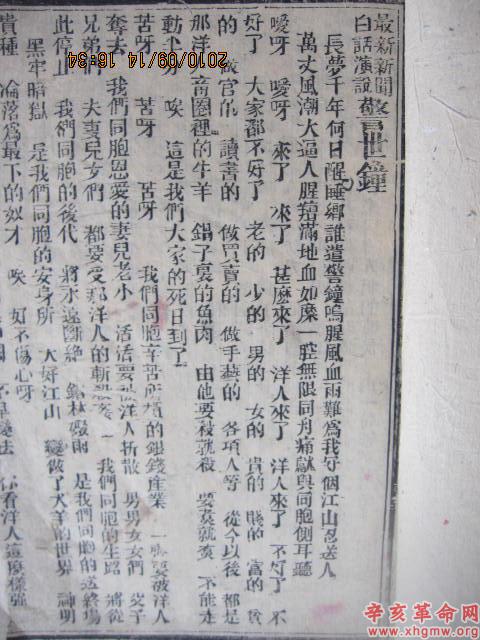 最新新聞
白話演說
警世鐘
長夢千年何日醒睡鄉誰遣警鐘鳴腥風血雨難為我好個江山忍送人
萬丈風潮大逼人腥羶滿地血如糜一腔無限同舟痛獻與同胞側耳聽
噯呀 噯呀 來了 來了 甚麼來了 洋人來了 洋人來了 不好了 不
好了 大家都不好了 老的 少的 男的 女的 貴的 賤的 富的 貧
的 做官的 讀書的 做買賣的 做手藝的 各項人等 從今以後 都是
那洋人畜圈裡的牛羊 鍋子裏的魚肉 由他要殺就殺 要煮就煮 不能走
動半分 唉 這是我們大家的死日到了
苦呀 苦呀 苦呀 我們同胞辛苦所積的銀錢產業 一齊要被洋人
奪去 我們同胞恩愛的妻兒老小 活活要被洋人拆散 男男女女們 父子
兄弟們 夫妻兒女們 都要受那洋人的斬殺姦 我們同胞的生路 將從
此停止 我們同胞的後代 將永遠斷絕 鎗林礮雨 是我們同胞的送終場
黑牢暗獄 是我們同胞的安身所 大好江山 變做了犬羊的世界 神明
貴種 淪落為最下的奴才 唉 好不傷心呀
你看洋人這麼樣強
2010/09/14 16:34
辛亥革命网
www.xhgmw.org